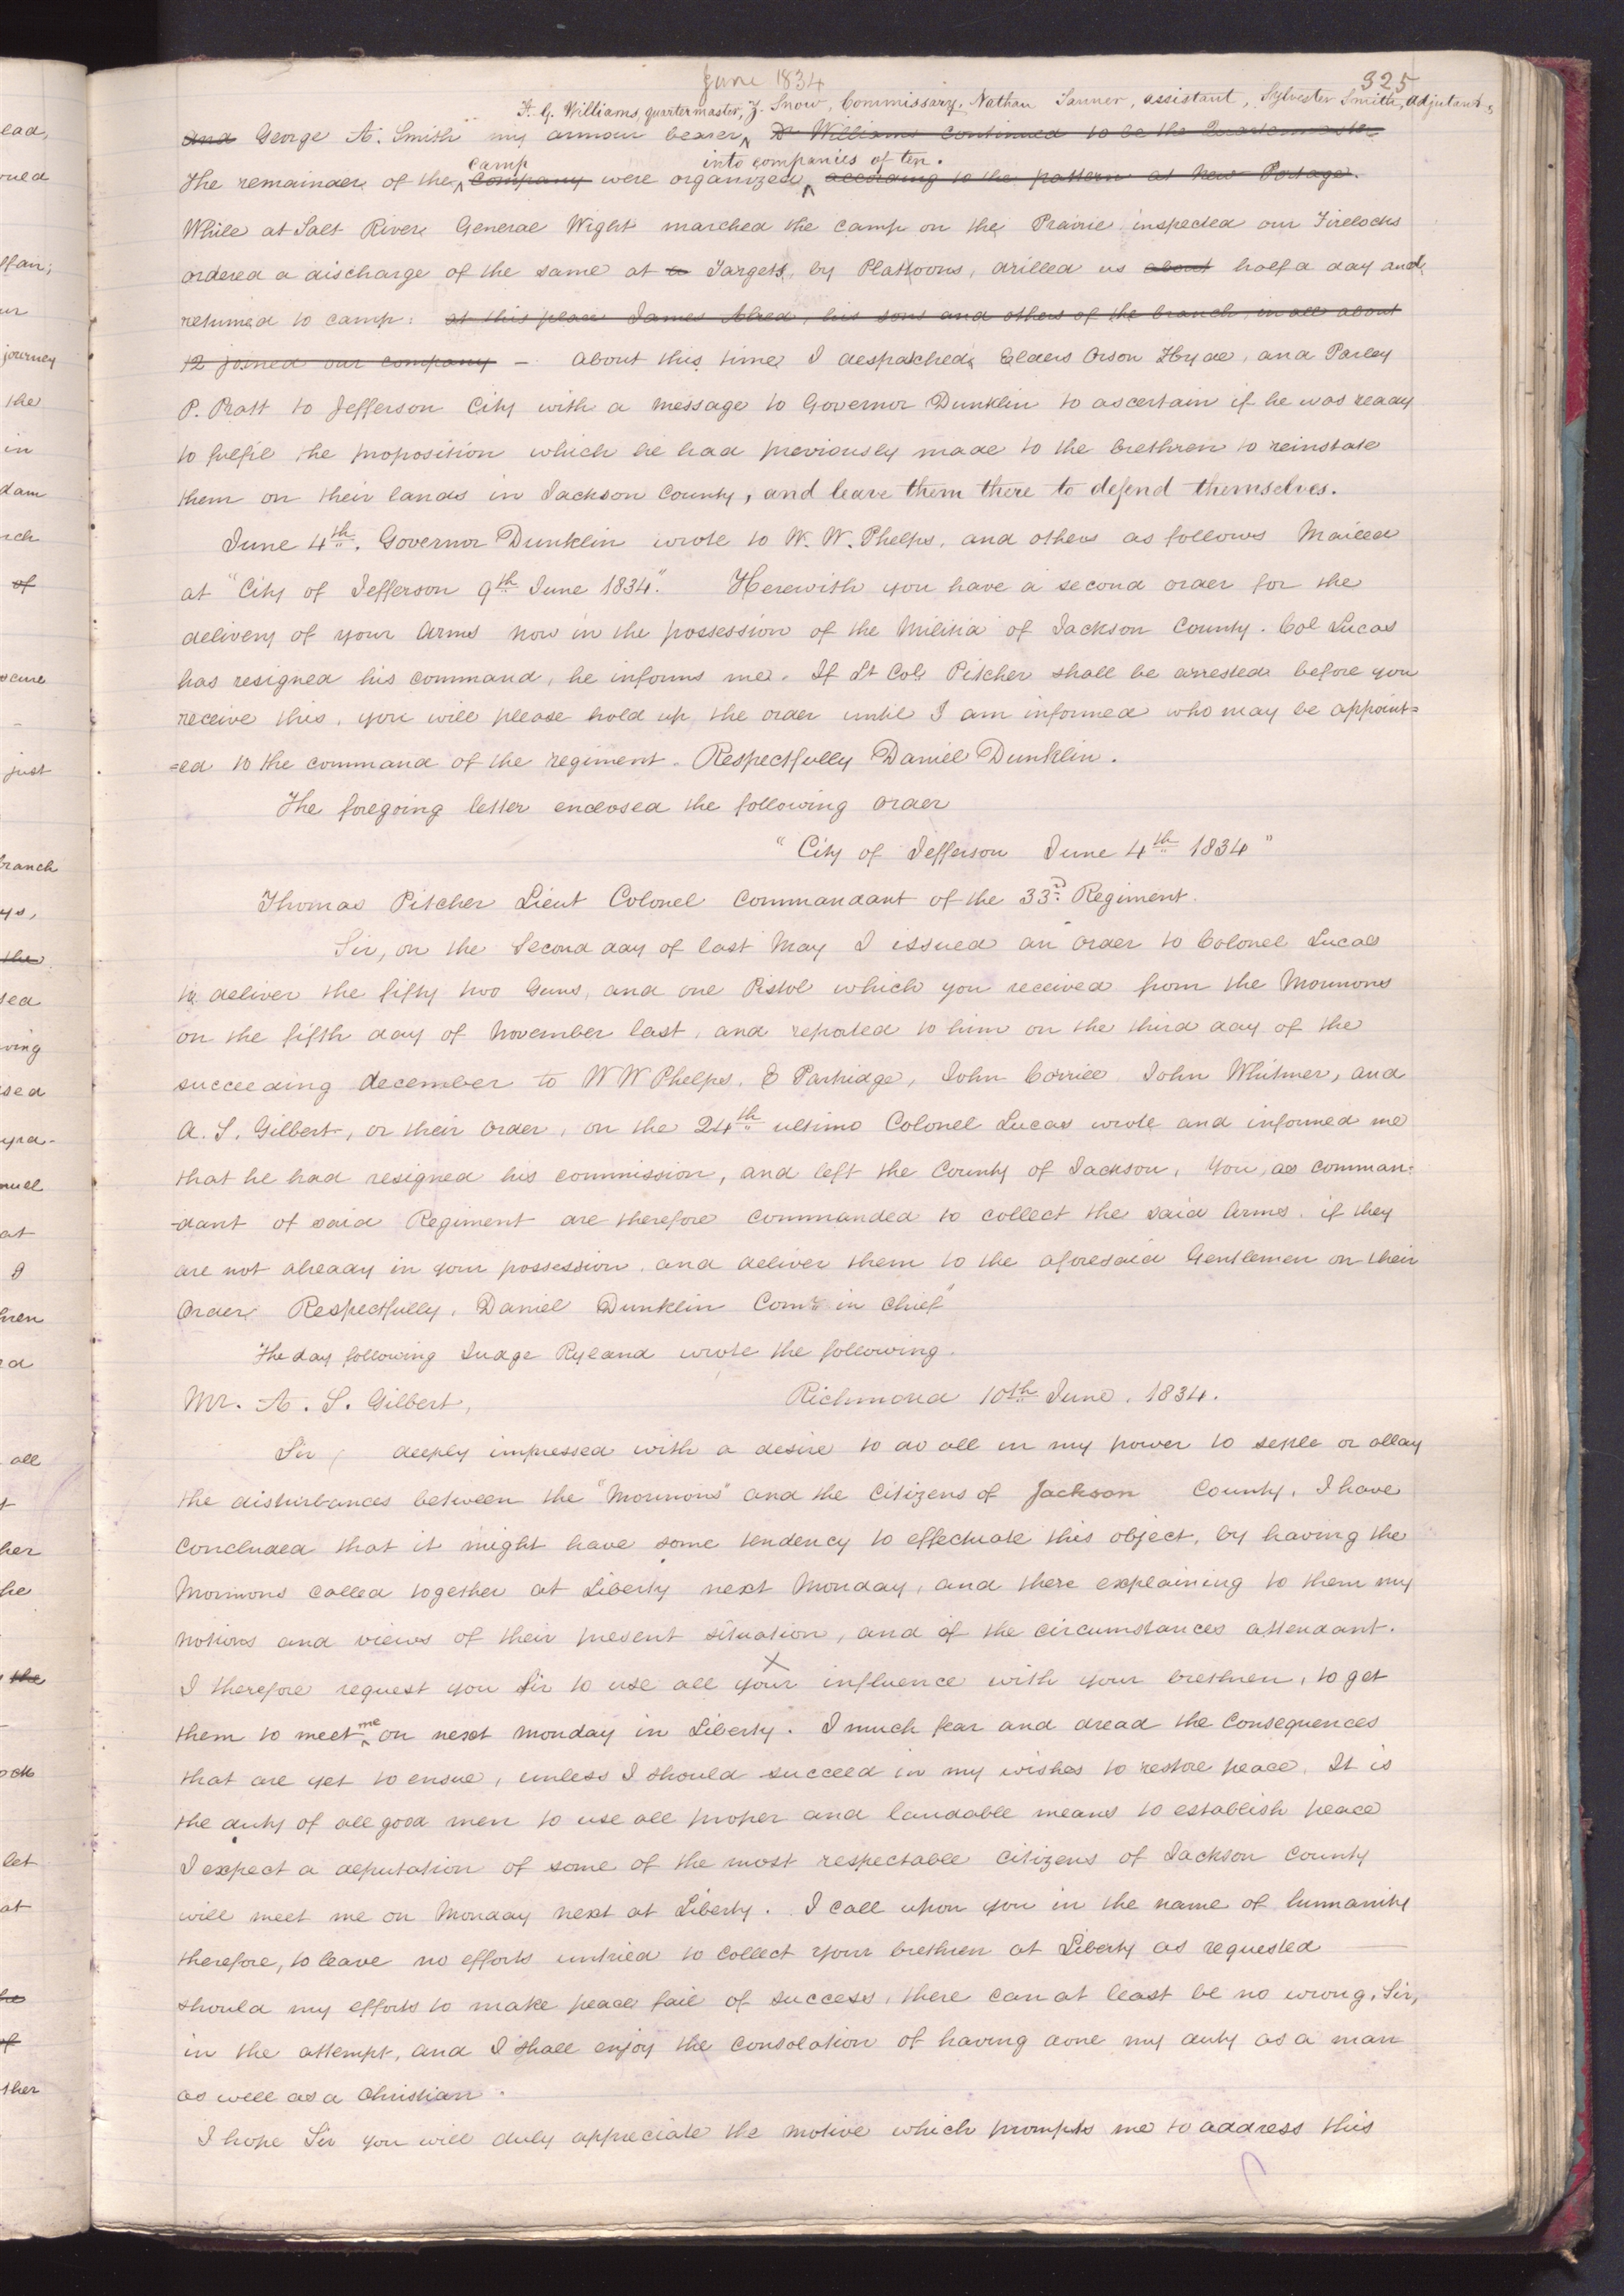 June 1834
325
F. G. Williams, quartermaster, Z. Snow, Commissary, Nathan Tanner, assistant, Sylvester Smith, adjutant,
and George A. Smith my armour bearer, ^ Dr Williams continued to be the Quartermaster
camp into companies of ten.
The remainder of the ^ Company were organized, ^ according to the pattern at New Portage.
While at Salt River General Wight marched the camp on the Prairie inspected our Firelocks
ordered a discharge of the same at a Targets, by Plattoons, drilled us about half a day and
returned to camp: at this place James Allred, his sons and others of the branch, in all about
12 joined our company – about this time I despatched Elders Orson Hyde, and Parley
P. Pratt to Jefferson City with a message to Governor Dunklin to ascertain if he was ready
to fulfil the proposition which he had previously made to the brethren to reinstate
them on their lands in Jackson County, and leave them there to defend themselves.
June 4th. Governor Dunklin wrote to W. W. Phelps, and others as follows Mailed
at "City of Jefferson 9th June 1834." Herewith you have a second order for the
delivery of your Arms now in the possession of the Militia of Jackson County. Col Lucas
has resigned his command, he informs me. If Lt Col Pitcher shall be arrested before you
receive this, you will please hold up the order until I am informed who may be appoint=
=ed to the command of the regiment. Respectfully Daniel Dunklin.
The foregoing letter enclosed the following order
"City of Jefferson June 4th 1834"
Thomas Pitcher Lieut Colonel Commandant of the 33d Regiment.
Sir, on the Second day of last May I issued an order to Colonel Lucas
to deliver the fifty two Guns, and one Pistol which you received from the Mormons
on the fifth day of November last, and reported to him on the third day of the
succeeding december to W W Phelps, E Partridge, John Corrill John Whitmer, and
A. S. Gilbert, or their order, on the 24th ultimo Colonel Lucas wrote and informed me
that he had resigned his commission, and left the County of Jackson, You, as comman-
-dant of said Regiment are therefore commanded to collect the said Arms. if they
are not already in your possession. and deliver them to the aforesaid Gentlemen or their
Order. Respectfully, Daniel Dunklin Comr in chief"
The day following Judge Ryland wrote the following.
Mr. A. S. Gilbert, Richmond 10th June, 1834.
Sir, deeply impressed with a desire to do all in my power to settle or allay
the disturbances between the "Mormons" and the Citizens of Jackson County, I have
concluded that it might have some tendency to effectuate this object, by having the
Mormons called together at Liberty next Monday, and there explaining to them my
notions and views of their present situation, and of the circumstances attendant.
X
I therefore request you Sir to use all your influence with your brethren, to get
them to meet ^me on next Monday in Liberty. I much fear and dread the Consequences
that are yet to ensue, unless I should succeed in my wishes to restore peace. It is
the duty of all good men to use all proper and laudable means to establish peace
I expect a deputation of some of the most respectable citizens of Jackson County
will meet me on Monday next at Liberty. I call upon you in the name of humanity
therefore, to leave no efforts untried to collect your brethren at Liberty as requested —
should my efforts to make peace fail of success, there can at least be no wrong, Sir,
in the attempt, and I shall enjoy the consolation of having done my duty as a man
as well as a Christian.
I hope Sir you will duly appreciate the motive which prompts me to address this